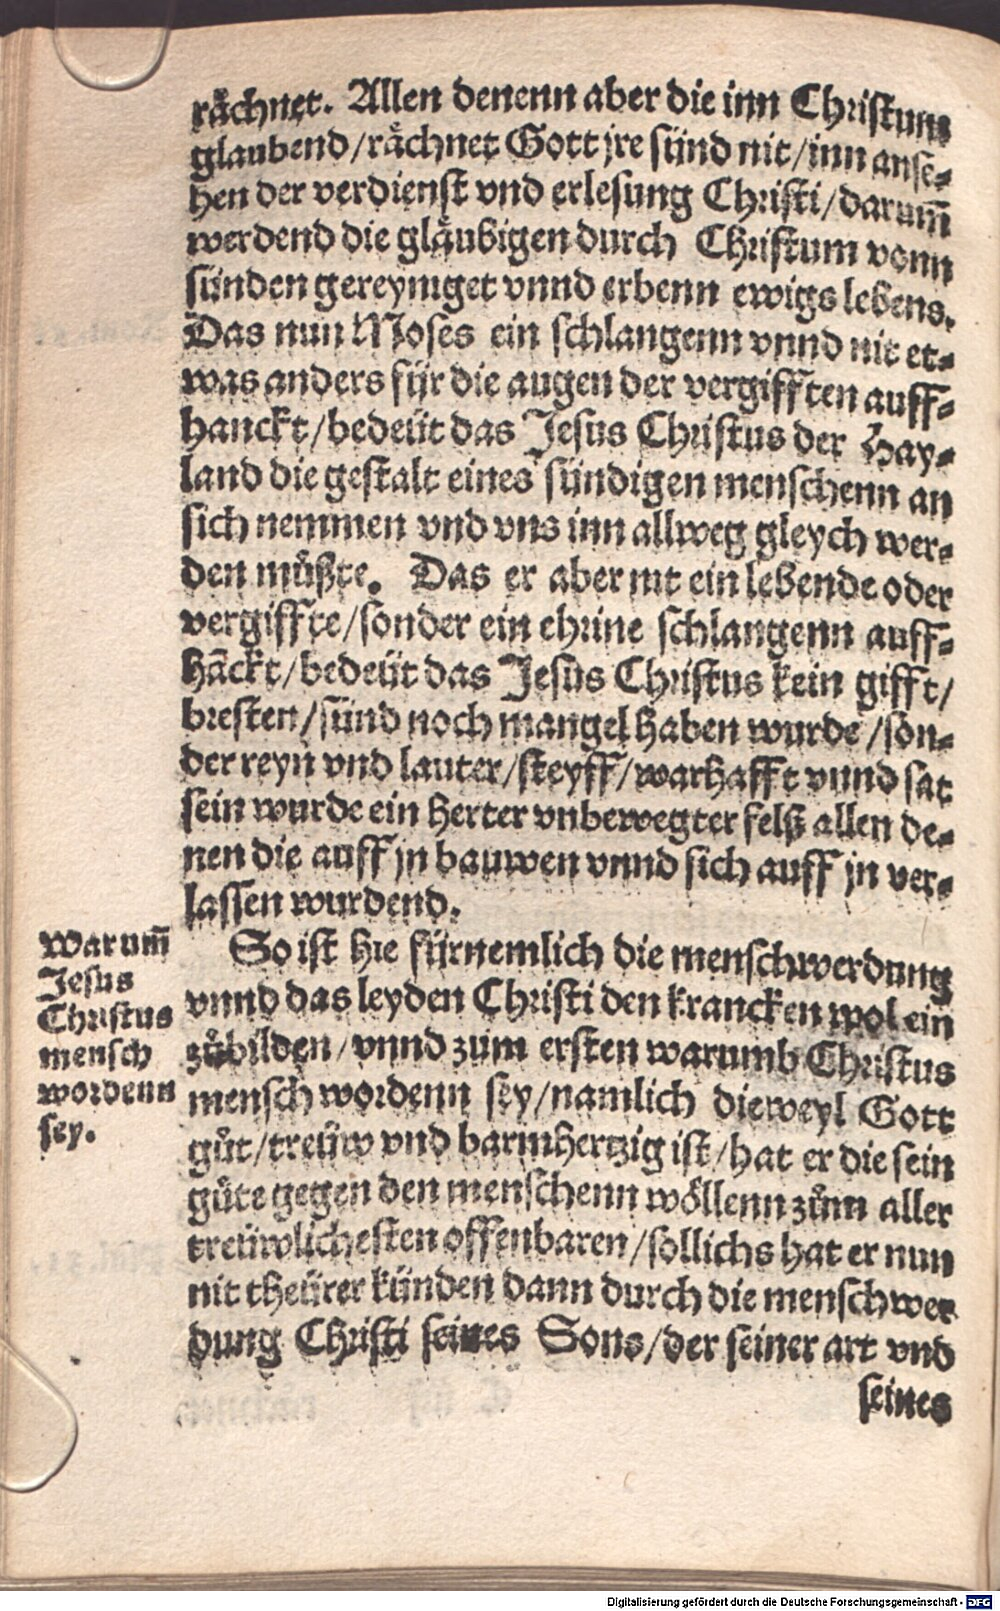 rächnet. Allen denenn aber die inn Christum
glaubend/rächnet Gott jre sünd nit/inn anse-
hen der verdienst vnd erlesung Christi/darum̃
werdend die gläubigen durch Christum vonn
sünden gereyniget vnnd erbenn ewigs lebens.
Das nun Moses ein schlangenn vnnd nit et-
was anders für die augen der vergifften auff-
hanckt/bedeüt das Jesus Christus der Hay-
land die gestalt eines sündigen menschenn an
sich nemmen vnd vns inn allweg gleych wer-
den müßte. Das er aber nit ein lebende oder
vergiffte/sonder ein ehrine schlangenn auff-
hãckt/bedeüt das Jesus Christus kein gifft/
bresten/sünd noch mangel haben wurde/son-
der reyn vnd lauter/steyff/warhafft vnnd sat
sein wurde ein herter vnbewegter felß allen de-
nen die auff jn bauwen vnnd sich auff jn ver-
lassen wurdend.
Warum̃
Jesus
Christus
mensch
wordenn
sey.
So ist hie fürnemlich die menschwerdung
vnnd das leyden Christi den krancken wol ein
zůbilden/vnnd zum ersten warumb Christus
mensch wordenn sey/namlich dieweyl Gott
gůt/treüw vnd barmhertzig ist/hat er die sein
güte gegen den menschenn wöllenn zům aller
treüwlichesten offenbaren/söllichs hat er nun
nit theürer künden dann durch die menschwer
dung Christi seines Sons/der seiner art vnd
seines
Digitalisierung gefördert durch die Deutsche Forschungsgemeinschaft - DFG